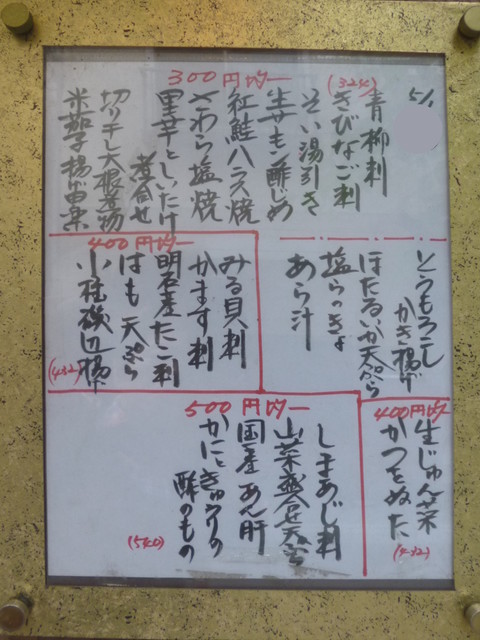 5/1
300円均一
(324)
青柳刺
きびなご刺
そい湯引き
生サモン酢じめ
紅鮭ハラス焼
さわら塩焼
里芋としいたけ
煮合せ
切り干し大根煮物
米茄子揚げ出し
とうもろこし
かき揚げ
ほたるいか天ぷら
塩らっきょ
あら汁
400円均一
みる貝刺
かます刺
明石産たこ刺
はも天ぷら
小柱磯辺揚げ
(432)
400円均一
生じゅん菜
かつをぬた
(432)
500円均一
しまあじ刺
山菜盛合せ天ぷら
国産あん肝
かにときゅうりの
酢のもの
(540)